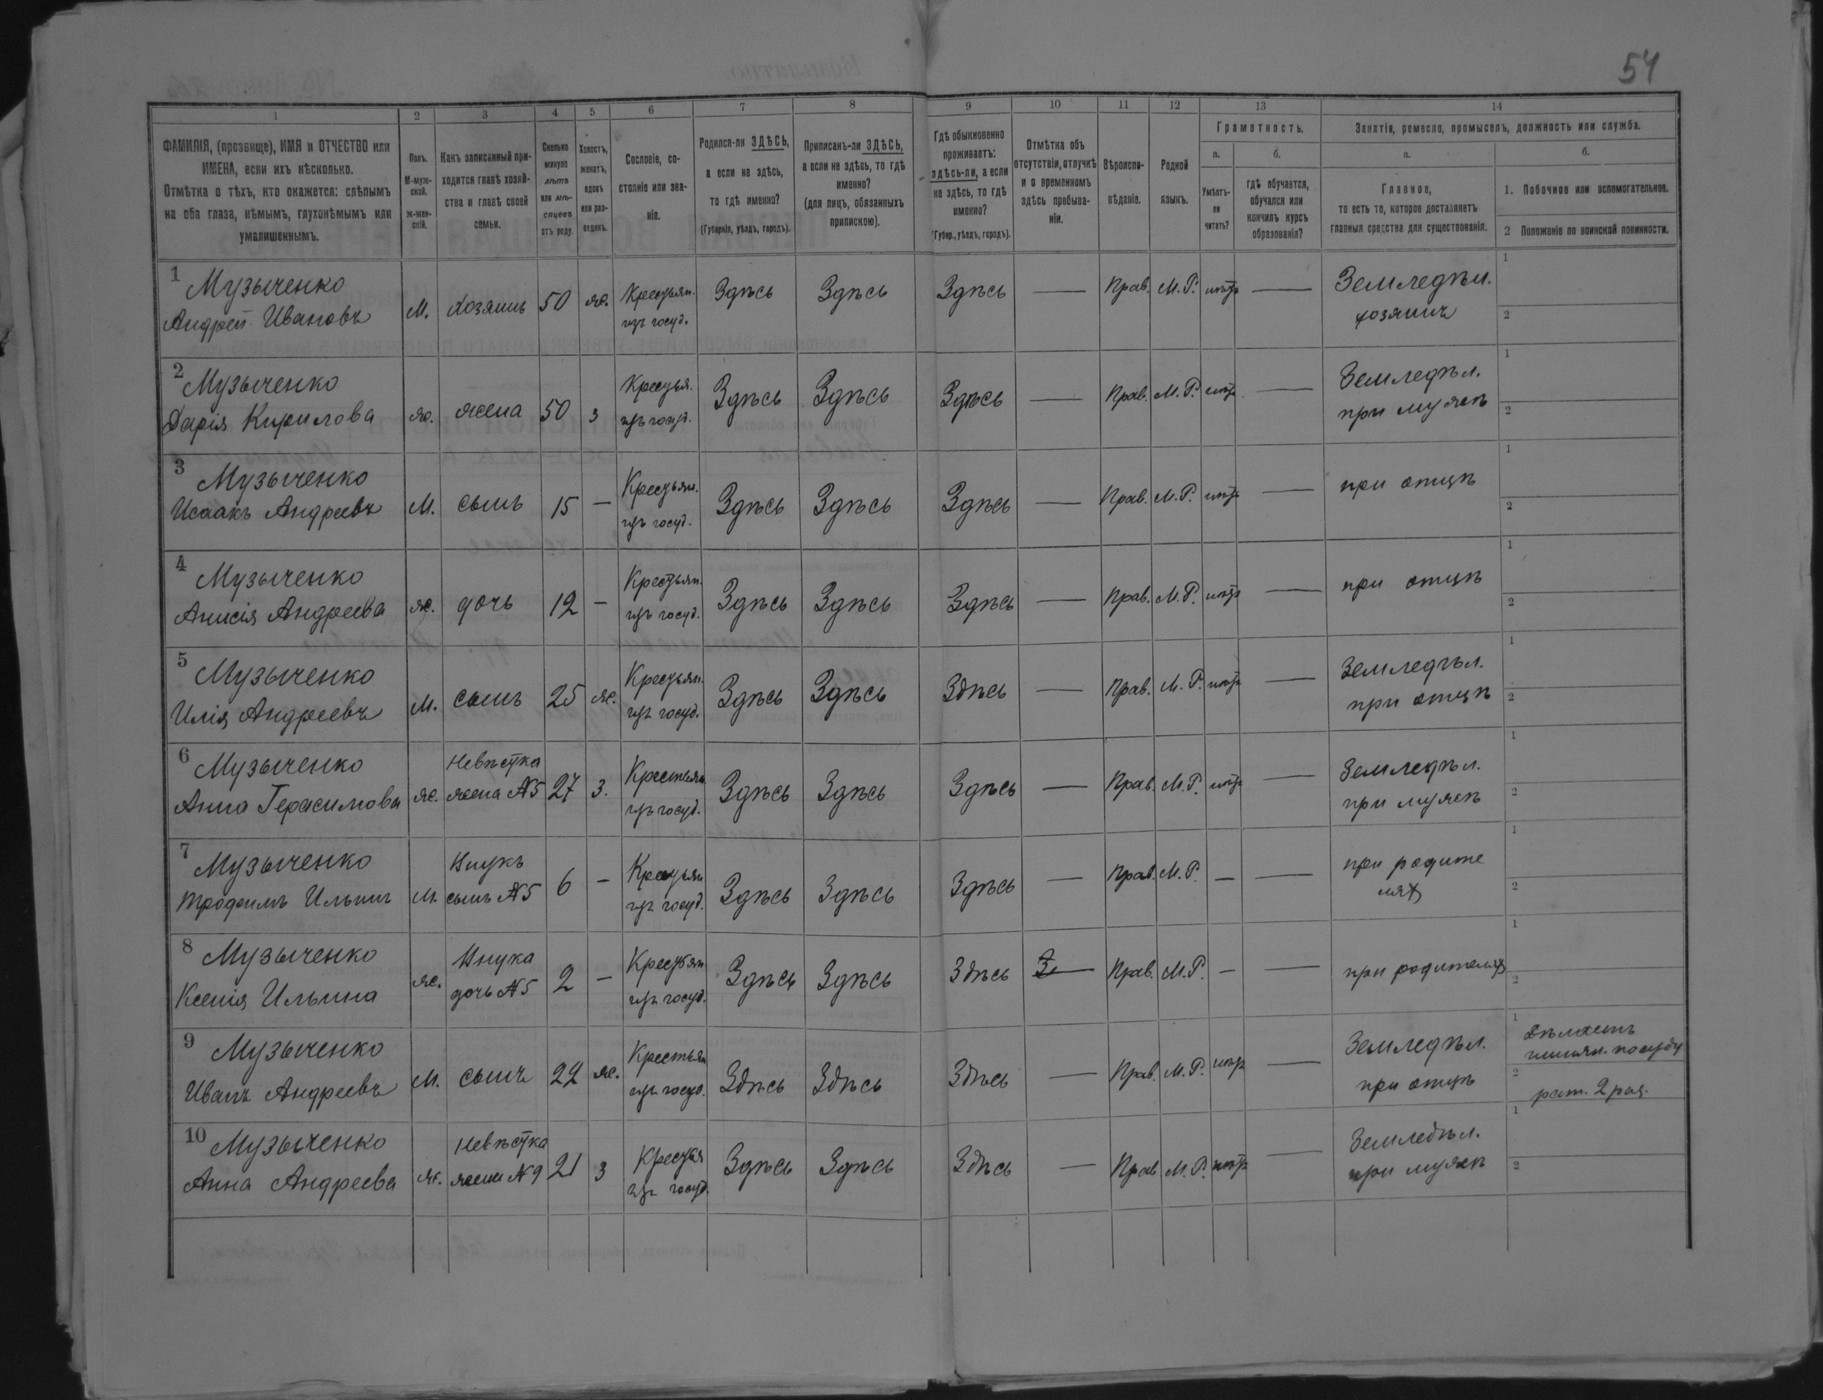 54
1 2 3 4 5 6 7 8 9 10 11 12 13 14
ФАМИЛІЯ, (прозвище), ИМЯ и ОТЧЕСТВО или
ИМЕНА, если ихъ нѣсколько.
Отмѣтка о тѣхъ, кто окажется: слѣпымъ
на оба глаза, нѣмымъ, глухонѣмымъ или
умалишеннымъ.
Полъ.
М-муж-
ской.
ж-жен-
скій.
Какъ записанный при-
ходится главѣ хозяй-
ства и главѣ своей
семьи.
Сколько
минуло
лѣтъ
или мѣ-
сяцевъ
отъ роду.
Холостъ,
женатъ,
вдовъ
или раз-
веденъ.
Сословіе, со-
стояніе или зва-
ніе.
Родился-ли ЗДѢСЬ,
а если не здѣсь,
то гдѣ именно?
(Губернія, уѣздъ, городъ).
Приписанъ-ли ЗДѢСЬ,
а если не здѣсь, то гдѣ
именно?
(для лицъ, обязанныхъ
припискою).
Гдѣ обыкновенно
проживаетъ:
здѣсь-ли, а если
не здѣсь, то гдѣ
именно?
(Губер., уѣздъ, городъ).
Отмѣтка объ
отсутствіи, отлучкѣ
и о временномъ
здѣсь пребыва-
ніи.
Вѣроиспо-
вѣданіе.
Родной
языкъ.
Грамотность.
а.
Умѣетъ-
ли
читать?
б.
гдѣ обучается,
обучался или
кончилъ курсъ
образованія?
Занятія, ремесло, промыселъ, должность или служба.
а.
Главное,
то есть то, которое доставляетъ
главныя средства для существованія.
б.
1. Побочное или вспомогательное.
2 Положеніе по воинской повинности.
1 Музыченко
Андрей Ивановъ М. Хозяинъ 50 ж. Крестьян. изъ госуд. Здѣсь Здѣсь Здѣсь — Прав. М.Р. нѣтъ — Земледѣл. хозяинъ 1 2
2 Музыченко
Дарія Кирилова ж. жена 50 з Крестья. изъ госуд. Здѣсь Здѣсь Здѣсь — Прав. М.Р. нѣтъ — Земледѣл. при мужѣ 1 2
3 Музыченко
Исаакъ Андреевъ М. сынъ 15 — Крестьян. изъ госуд. Здѣсь Здѣсь Здѣсь — Прав. М.Р. нѣтъ — при отцѣ 1 2
4 Музыченко
Анисія Андреева ж. дочь 12 — Крестьян. изъ госуд. Здѣсь Здѣсь Здѣсь — Прав. М.Р. нѣтъ — при отцѣ 1 2
5 Музыченко
Илія Андреевъ М. сынъ 25 ж. Крестьян. изъ госуд. Здѣсь Здѣсь Здѣсь — Прав. М.Р. нѣтъ — Земледѣл. при отцѣ 1 2
6 Музыченко
Анна Герасимова ж. Невѣстка жена №5 27 з. Крестьян изъ госуд. Здѣсь Здѣсь Здѣсь — Прав. М.Р. нѣтъ — Земледѣл. при мужѣ 1 2
7 Музыченко
Трофимъ Ильинъ М. Внукъ сынъ №5 6 — Крестьян изъ госуд. Здѣсь Здѣсь Здѣсь — Прав. М.Р. — — при родите лях 1 2
8 Музыченко
Ксенія Ильина ж. Внука дочь №5 2 — Крестьян изъ госуд. Здѣсь Здѣсь Здѣсь — Прав. М.Р. — — при родителях 1 2
9 Музыченко
Иванъ Андреевъ М. сынъ 22 ж. Крестьян изъ госуд. Здѣсь Здѣсь Здѣсь — Прав. М.Р. нѣтъ — Земледѣл. при отцѣ 1 дѣлаетъ глинян. посуду 2 рат. 2 раз.
10 Музыченко
Анна Андреева ж. Невѣстка жена №9 21 з Крестья изъ госуд. Здѣсь Здѣсь Здѣсь — Прав М.Р. нѣтъ — Земледѣл. при мужѣ 1 2